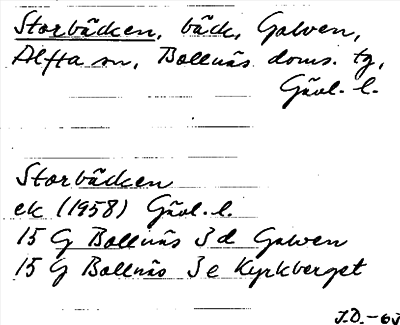 Storbäcken, bäck, Galven,
Alfta sn, Bollnäs doms. tg,
Gävl. l.
Storbäcken
ek (1958) Gävl. l.
15 G Bollnäs 3 d Galven
15 G Bollnäs 3 e Kyrkberget
J.D. -63